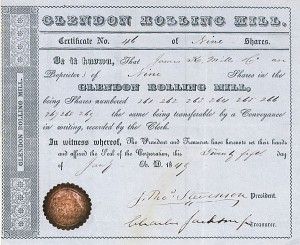 GLENDON ROLLING MILL.
Certificate No. 46 of Nine Shares.
Be it known, That James K. Mills
Proprietor of Nine Shares in the
GLENDON ROLLING MILL,
being Shares numbered 261 262 263 264 265 266
267 268 269 the same being transferable by a Conveyance
in writing, recorded by the Clerk.
In witness whereof, The President and Treasurer have hereunto set their hands
and affixed the Seal of the Corporation, this Twenty first
day of A. D. 1849
J. Tho. Stevenson President.
Charles Jackson Jr Treasurer.
GLENDON ROLLING MILL.